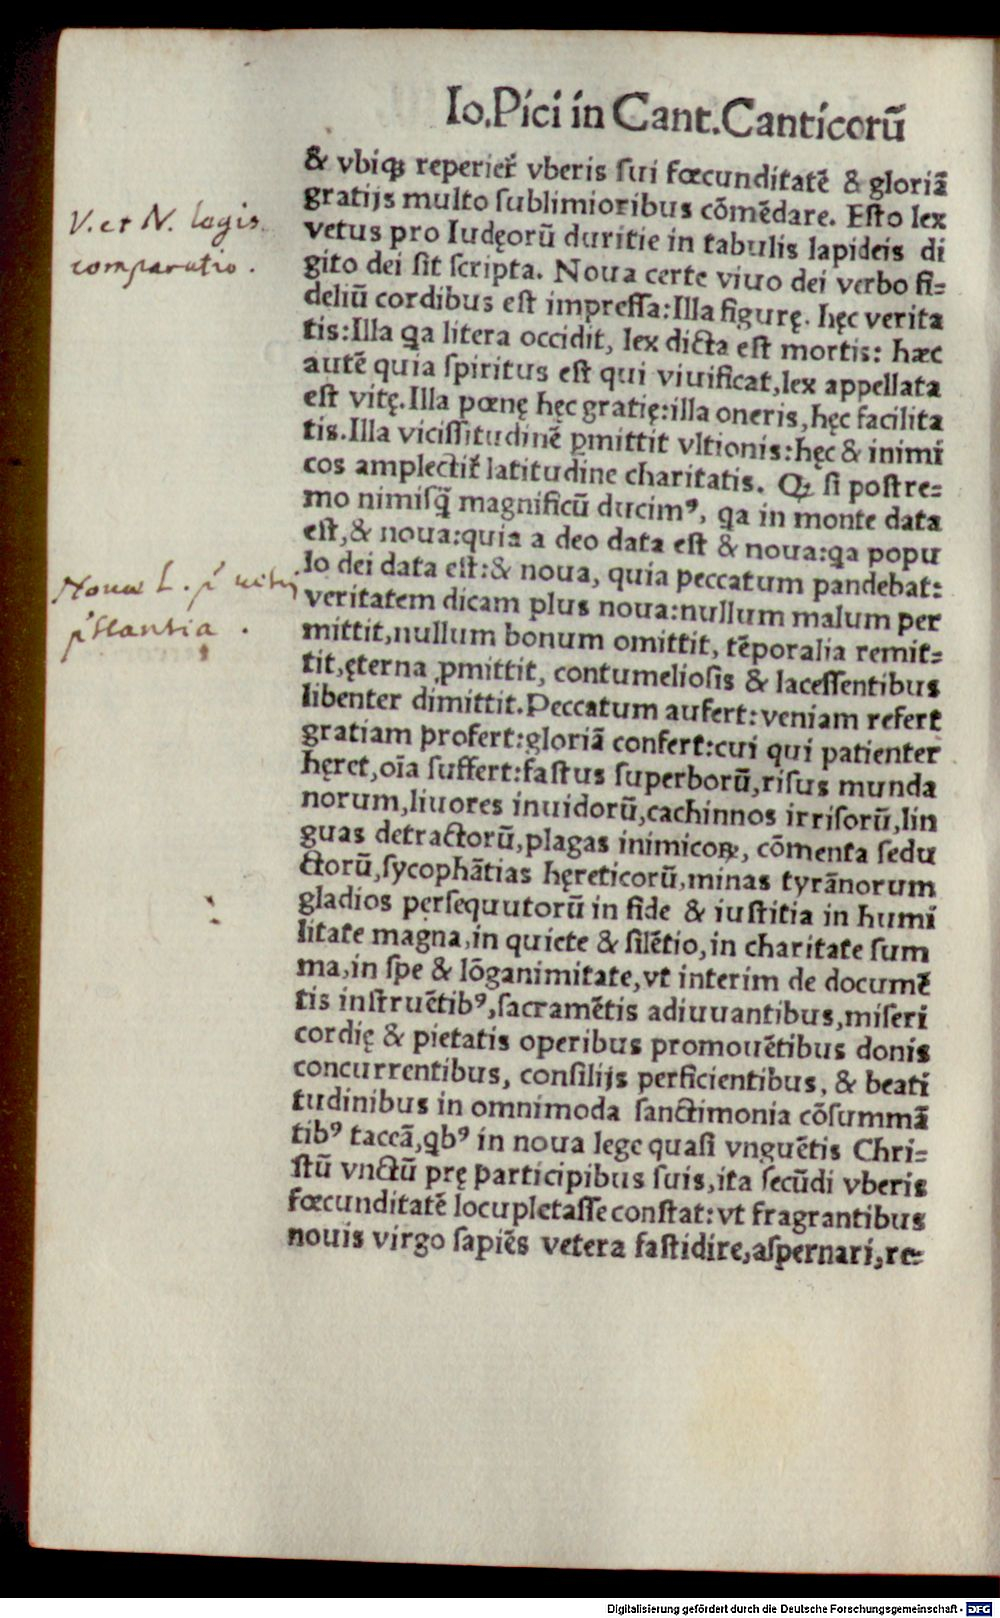 Io.Pici in Cant.Canticorū
& vbiqꝫ reperiet̄ vberis ſui fœcunditatē & gloriā
gratijs multo ſublimioribus cōmēdare. Eſto lex
vetus pro Iudęorū duritie in tabulis lapideis di
gito dei ſit ſcripta. Noua certe viuo dei verbo fi-
deliū cordibus eſt impreſſa:Illa figurę. hęc verita
tis:Illa qa litera occidit, lex dicta eſt mortis: hæc
autē quia ſpiritus eſt qui viuificat,lex appellata
eſt vitę.Illa pœnę hęc gratię:illa oneris,hęc facilita
tis.Illa viciſſitudinē ꝑmittit vltionis:hęc & inimi
cos amplectit̄ latitudine charitatis. Qꝫ ſi poſtre-
mo nimiſq̄ magnificū ducimꝰ, qa in monte data
eſt,& noua:quia a deo data eſt & noua:qa popu
lo dei data eſt:& noua, quia peccatum pandebat:
veritatem dicam plus noua:nullum malum per
mittit,nullum bonum omittit, tēporalia remit-
tit,ęterna ꝓmittit, contumelioſis & laceſſentibus
libenter dimittit.Peccatum aufert:veniam refert
gratiam profert:gloriā confert:cui qui patienter
hęret,oīa ſuffert:faſtus ſuperborū,riſus munda
norum,liuores inuidorū,cachinnos irriſorū,lin
guas detractorū,plagas inimicoꝝ, cōmenta ſedu
ctorū,ſycophātias hęreticorū,minas tyrānorum
gladios perſequutorū in fide & iuſtitia in humi
litate magna,in quiete & ſilētio,in charitate ſum
ma,in ſpe & lōganimitate,vt interim de documē
tis inſtruētibꝰ,ſacramētis adiuuantibus,miſeri
cordię & pietatis operibus promouētibus donis
concurrentibus, conſilijs perficientibus, & beati
tudinibus in omnimoda ſanctimonia cōſummā
tibꝰ taceā,qbꝰ in noua lege quaſi vnguētis Chri-
ſtū vnctū prę participibus ſuis,ita ſecūdi vberis
fœcunditatē locupletaſſe conſtat:vt fragrantibus
nouis virgo ſapiēs vetera faſtidire,aſpernari,re-
V. et N. legis
comparatio.
Novæ L.
Digitalisierung gefördert durch die Deutsche Forschungsgemeinschaft - DFG